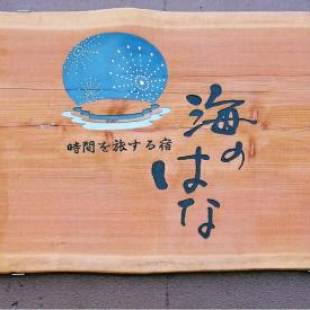 海の
はな
時間を旅する宿